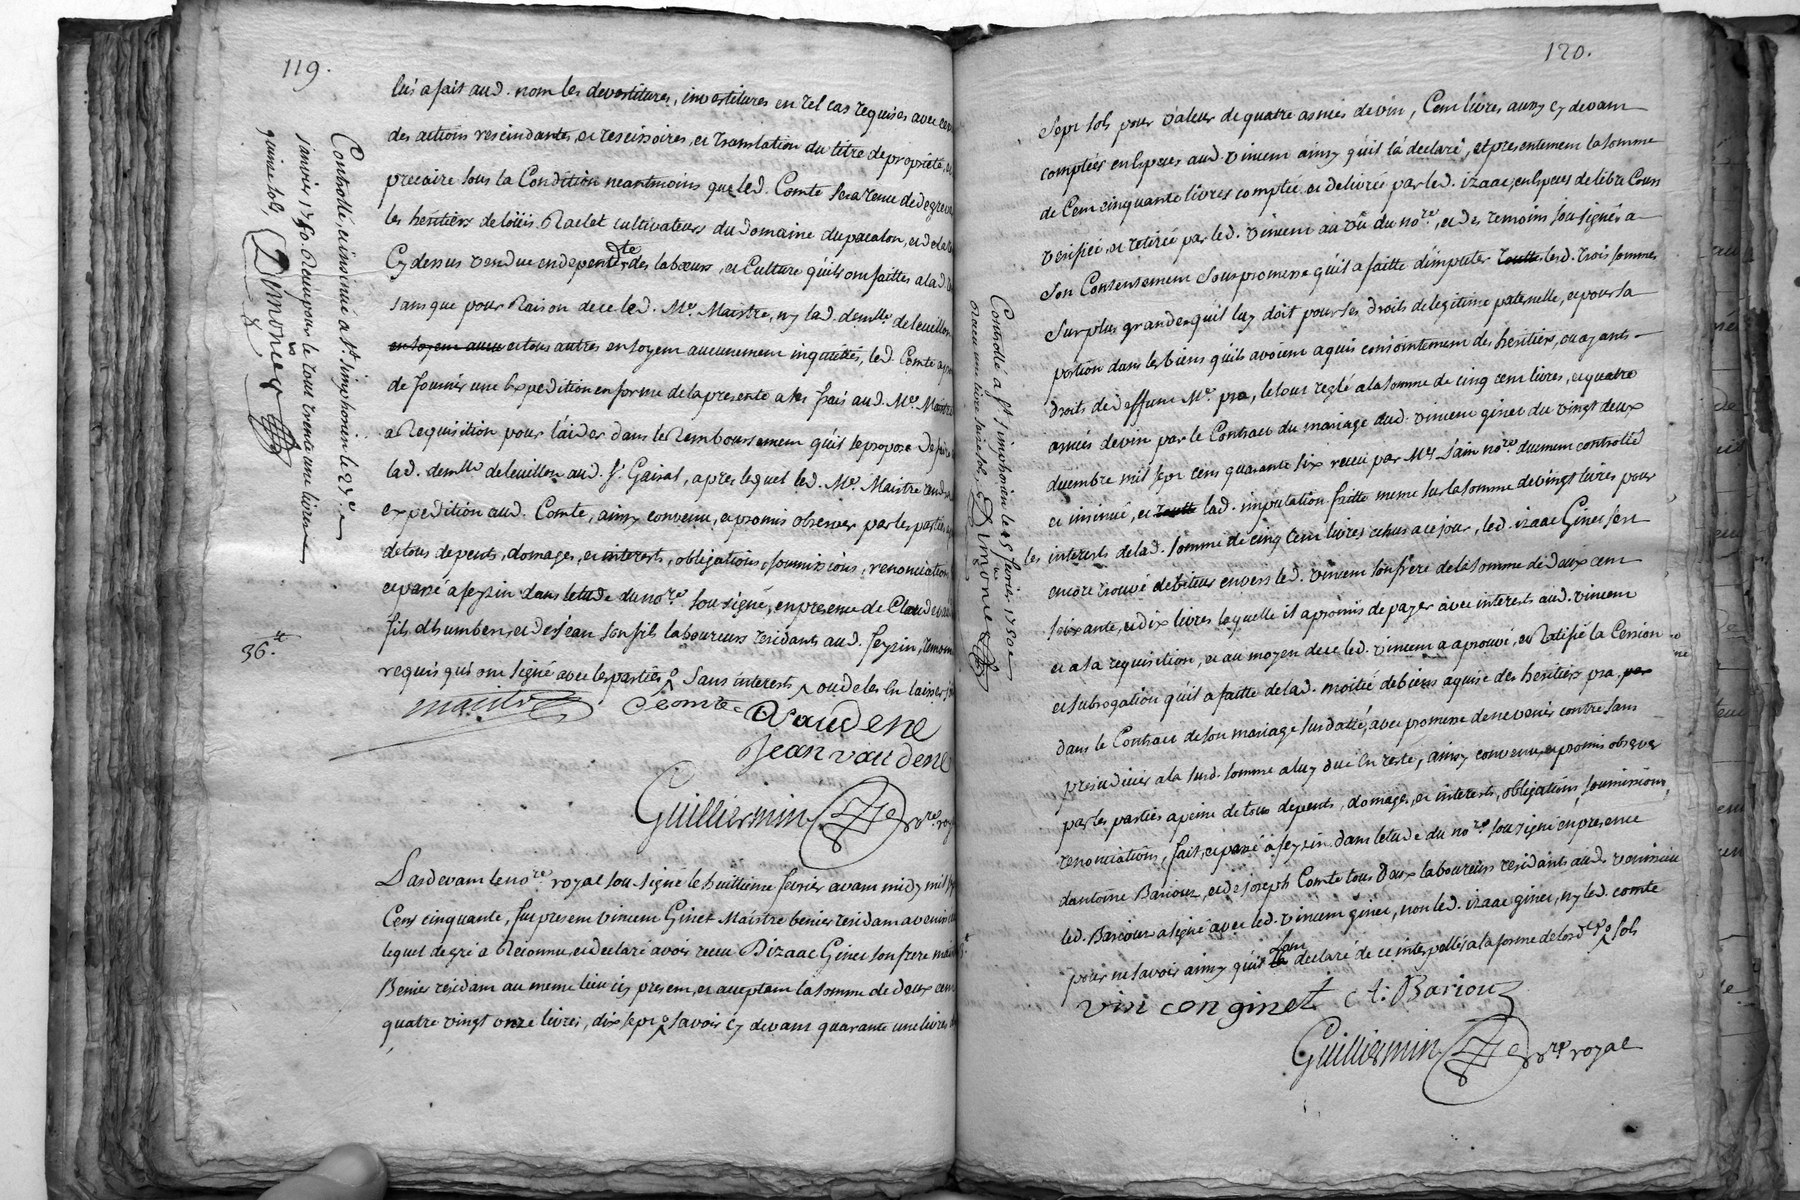 119.
lui a fait aud. nom les devestitures, investitures en tel cas requises avec
des actions rescindantes, et rescisoires, et translation du titre de proprieté,
precaire sous la Condition neantmoins que led. Comte sera tenu de
les heritiers de loüis Raclet cultivateurs du domaine du pacalon, et de la
Cy dessus vendue en dependte des labeurs, et Culture qu'ils ont faittes a lad.
sans que pour Raison de ce led. Mr. Maistre, ny lad. demlle deleuillon
et tous autres en soyent aucunement inquiettés, led. Comte
de fournir une Expedition en forme de la presente a ses frais aud. Mr. Maistre
a Requisition pour l'aider dans le Remboursement qu'il se propose de faire
lad. demlle deleuillon aud. Sr. Gairal, apres lequel led. Mr. Maistre
expedition aud. Comte, ainsy convenu, et promis observer par les parties
de tous depents, domages, et interests, obligations, soumissions, renonciations
et passé a feyzin dans letude du nore. sousigné, en presence de Claude
fils d'humbert, et de Jean son fils laboureurs residants aud. feyzin, temoins
requis qui ont signé avec les parties sans interests ou de les en laisser
36.tt
maistre Comte C Vaudene
Jean vaudene
Guilliermin nre. roy
Pardevant le nore. royal sousigné le huittieme fevrier avant midy mil
Cens cinquante, fut present vincent Ginet Maistre benier residant a
lequel de gré a Reconnu, et declaré avoir receu D'izaac Ginet son frere
Benier residant au meme lieu icy present, et acceptant la somme de deux cent
quatre vingt onze livres, dix sept savoir cy devant quarante une livres
Controllé, et insinué a St. simphorien le 27e
janvier 1750. Receu pour le tout trente une livres
quinze sols, Dimonier
120.
sept sols pour valeur de quatre asnées de vin, Cent livres aussy cy devant
comptées en Especes aud. vincent ainsy qu'il l'a declaré, et presentement la somme
de Cent cinquante livres comptée et delivrée par led. izaac, en Especes de libre Cours
verifiée, et retirée par led. vincent au vû du nore., et des temoins sousignés a
son Consentement sous promesse qu'il a faitte d'imputer lesd. trois sommes
sur plus grande qu'il luy doit pour ses droits de legitime paternelle, et pour sa
portion dans les biens qu'ils avoient aquis conjointement des heritiers, ou ayants
droits de deffunt Me. pra, le tout reglé a la somme de cinq cent livres, et quatre
asnées de vin par le Contract du mariage dud. vincent ginet du vingt deux
decembre mil sept cens quarante six receu par Me Sain nore. duement controllé
et insinué, et lad. imputation faitte meme sur la somme de vingt livres pour
les interests de lad. somme de cinq Cent livres echus a ce jour, led. izaac Ginet s'est
encore trouvé debiteur envers led. vincent son frere de la somme de deux cent
soixante, et dix livres laquelle il a promis de payer avec interests aud. vincent
et a sa requisition, et au moyen de ce led. vincent a aprouvé, et Ratifié la Cession
et subrogation qu'il a faitte de lad. moitié de biens aquise des heritiers pra
dans le Contract de son mariage susdatté, avec promesse de ne venir contre sans
prejudicier a la susd. somme a luy due en reste, ainsy convenu, et promis observer
par les parties a peine de tous depents, domages, et interests, obligations, soumissions,
renonciations, fait, et passé a feyzin dans letude du nore. sousigné en presence
d'antoine Bariouz, et de joseph Comte tous deux laboureurs residants aud. venissieu
led. Bariouz a signé avec led. vincent ginet, non led. izaac ginet, ny led. comte
pour ne savoir ainsy qu'ils l'ont declaré de ce interpellés a la forme de lordce. sols
vincen ginet A. Bariouz
Guilliermin nre. royal
Controllé a St. simphorien le 15 fevrier 1750
Receu une livre seize sols, Dimonier